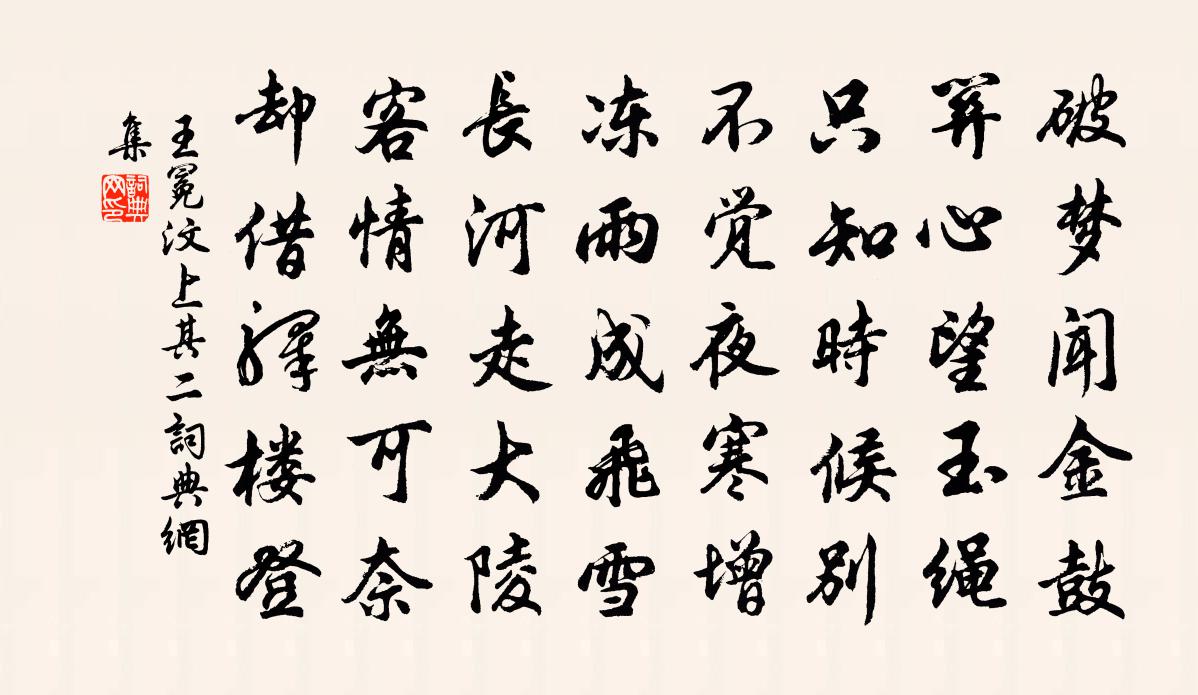 破梦闻金鼓
关心望玉绳
只知時候别
不觉夜寒增
冻雨成飛雪
長河走大陵
客情無可奈
却借驛楼登
王冕汶上其二詞典網
集
詞典
网印